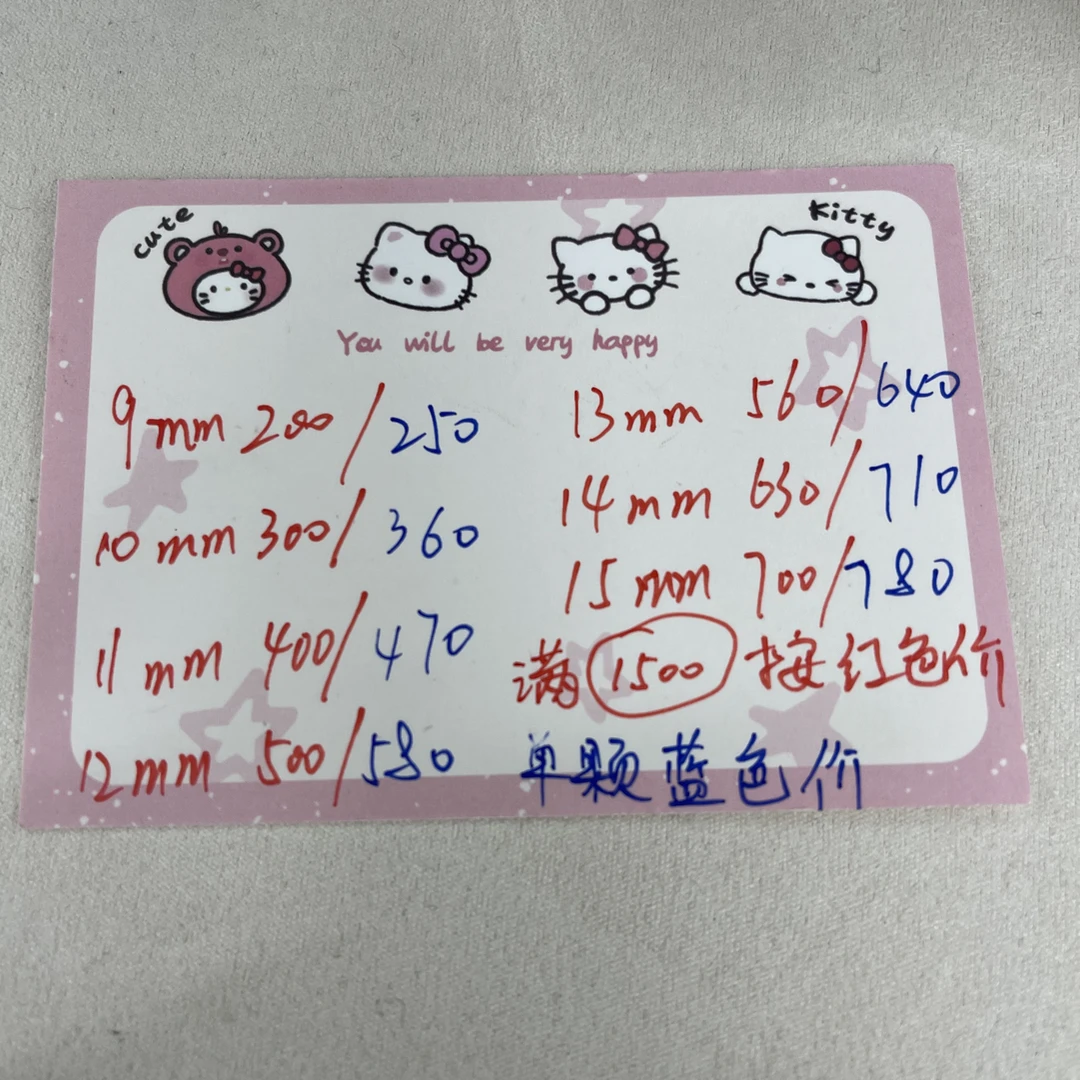 cute
Kitty
You will be very happy
9mm 200/250
10mm 300/360
11mm 400/470
12mm 500/580
13mm 560/640
14mm 630/710
15mm 700/780
满1500按红色价
单颗蓝色价